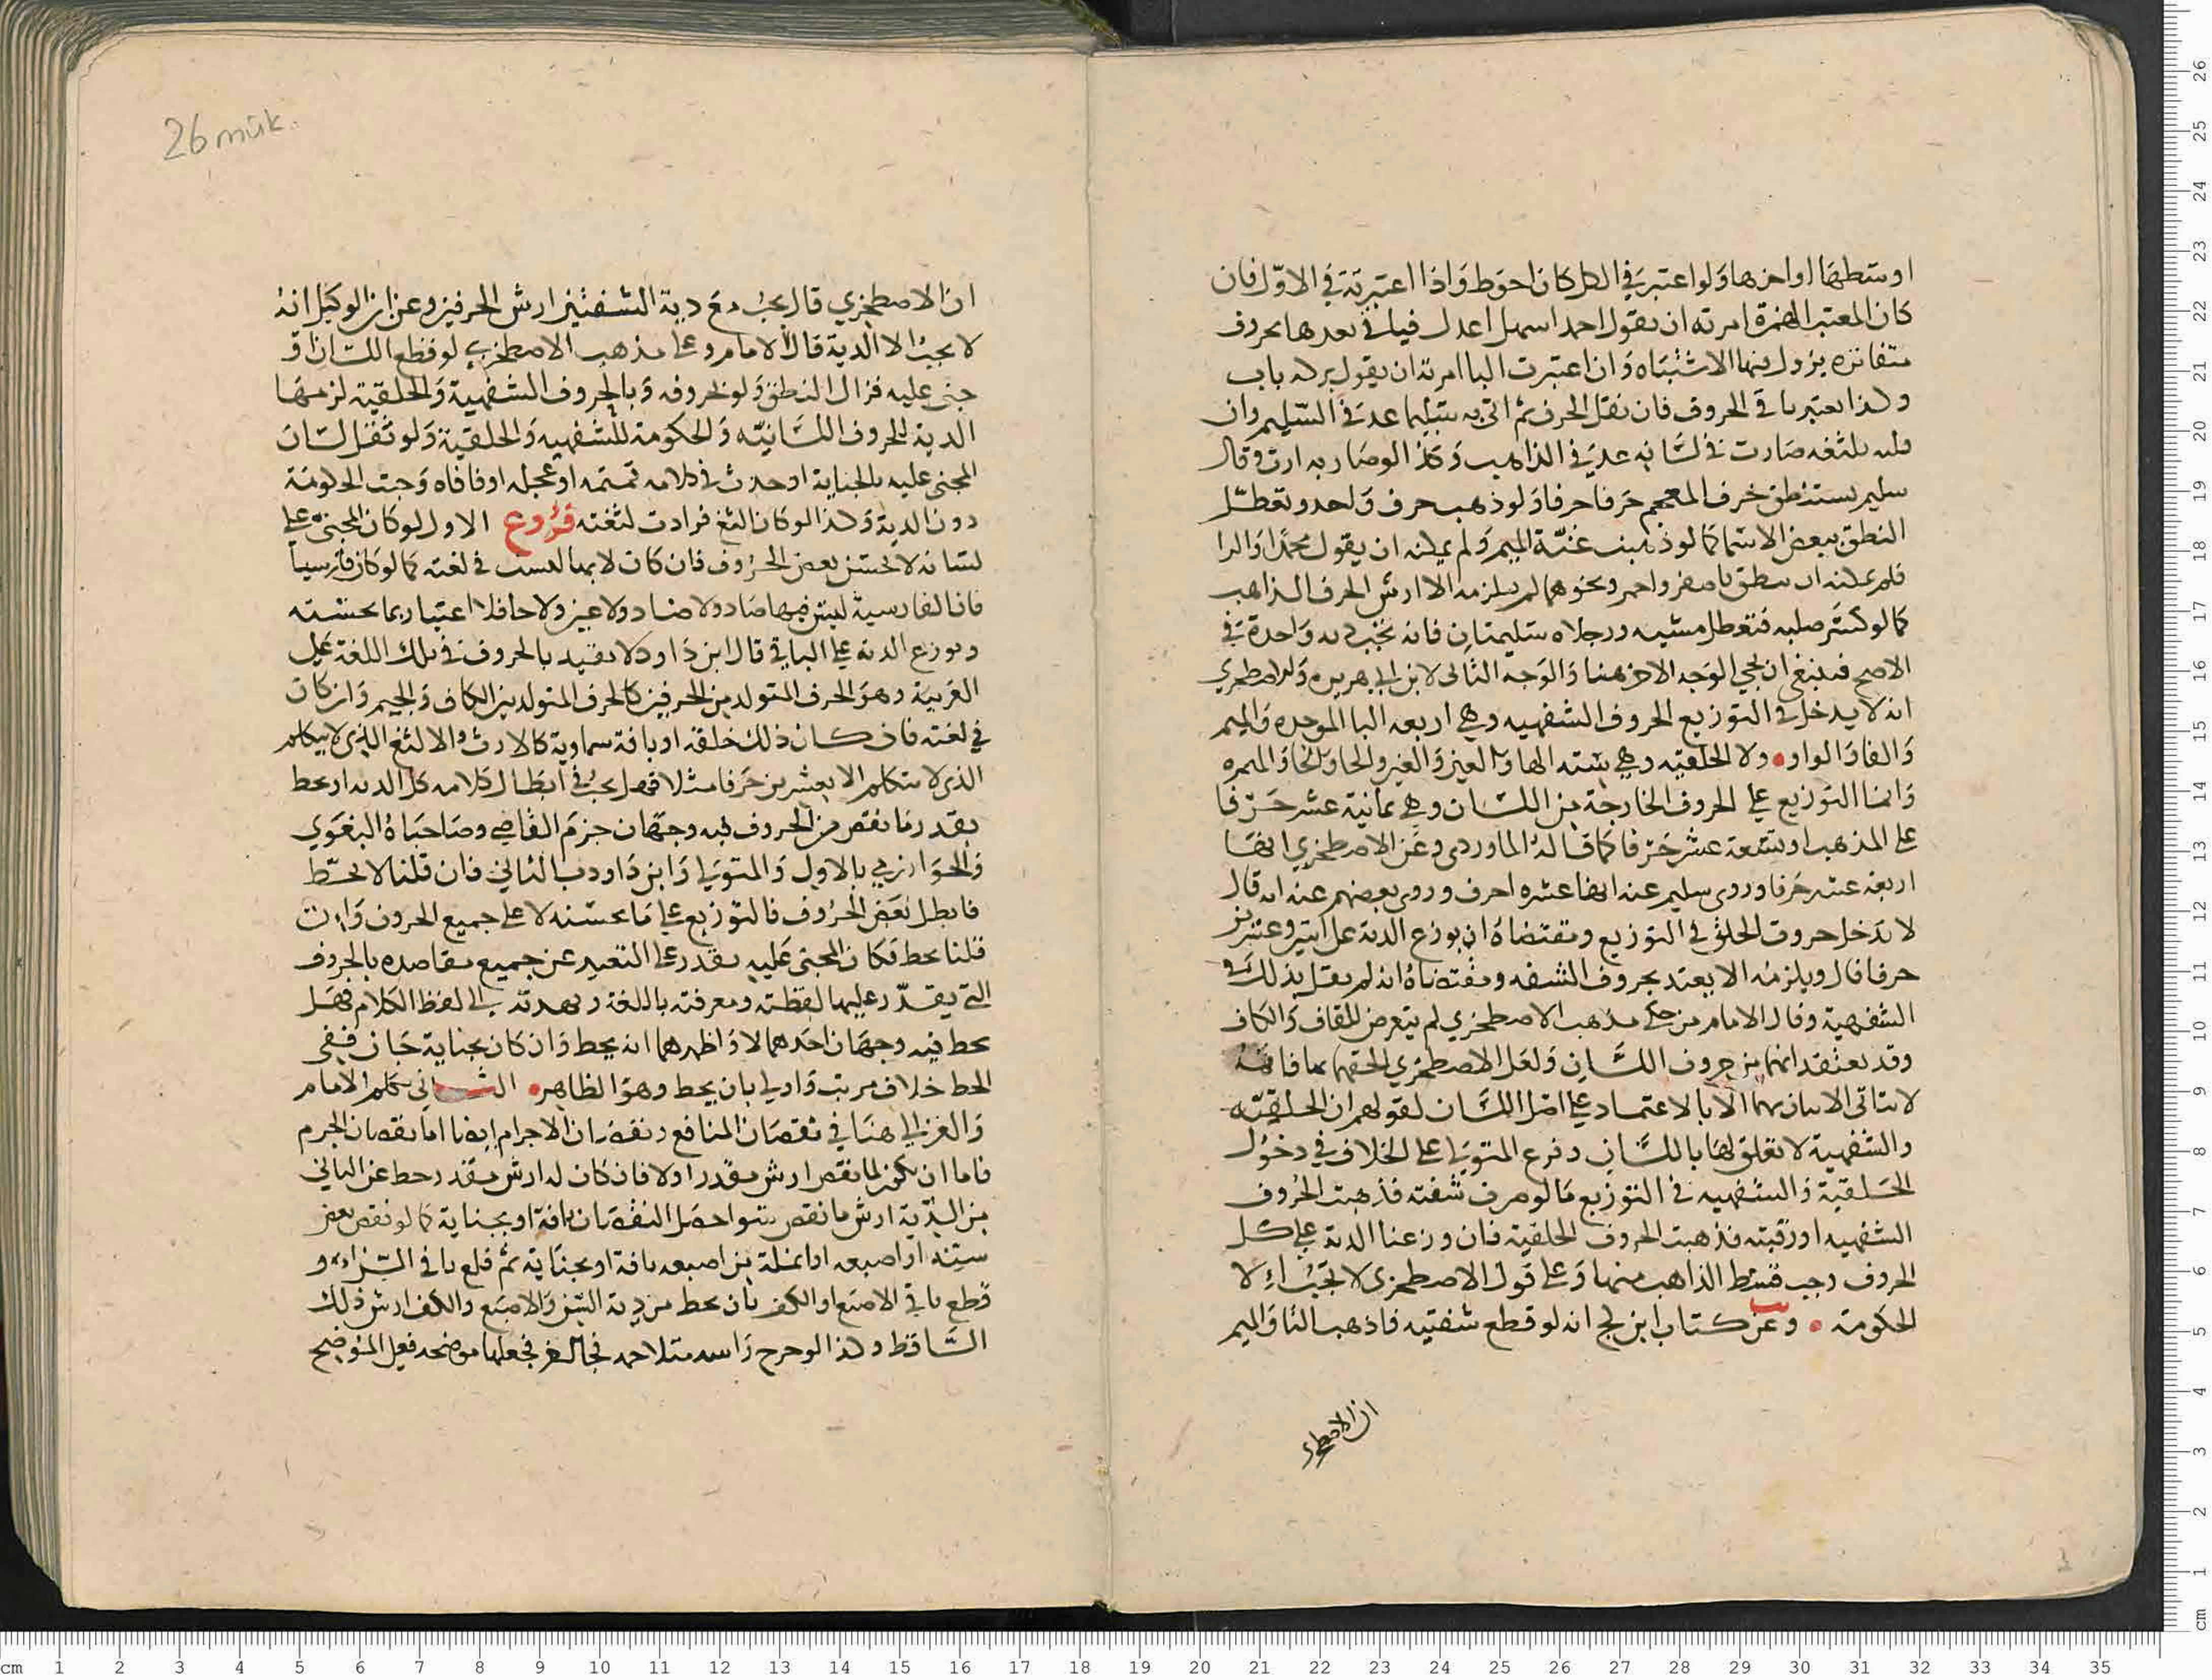 اوسطها او اخرها ولو اعتبر في الكل كان احوط واذا اعتبرته في الاول فان
كان المعتبر الهمزة امرته ان يقول احمد اسهل اعدل فياتي بعدها بحروف
متغايره يزول بها الاشتباه وان اعتبرت البا امرته ان يقول بركه باب
وكذا يعتبر باقي الحروف فان نقل الحرف ثم اتى به سليما عد في السليم وان
قلبه بلثغه صارت في لسانه عد في الذاهب وكذا لو صار به ارت وقال
سليم يستنطق بحرف المعجم حرفا حرفا ولو ذهب حرف واحد وتعطل
النطق ببعض الاسما كما لو ذهبت غنة الميم ولم يمكنه ان يقول محمد او الرا
فلم يمكنه ان ينطق باصفر واحمر ونحوهما لم يلزمه الا ارش الحرف الذاهب
كما لو كسر صلبه فتعطل مشيه ورجلاه سليمتان فانه تجب ديه واحدة في
الاصح فينبغي ان يجي الوجه الاخر هنا والوجه الثاني لابن ابي هريره والاصطخري
انه لا يدخل في التوزيع الحروف الشفهيه وهي اربعه البا الموحده والميم
والفا والواو ولا الحلقيه وهي سته الها والعين والغين والحا والخا والهمزه
وانما التوزيع على الحروف الخارجة من اللسان وهي ثمانية عشر حرفا
على المذهب او تسعة عشر حرفا كما قاله الماوردي وعن الاصطخري ايضا
اربعة عشر حرفا وروى سليم عنه ايضا عشره احرف وروى بعضهم عنه انه قال
لا تدخل حروف الحلق في التوزيع ومقتضاه ان يوزع الدية على اثنين وعشرين
حرفا قال ويلزمه الا يعتد بحروف الشفه ومقتضاه انه لم يقل بذلك في
الشفهية وقال الامام من حكى مذهب الاصطخري لم يتعرض للقاف والكاف
وقد يعتقد انهما من حروف اللسان ولعل الاصطخري الحقهما بما فاته
لا يتاتى الاتيان بهما الا بالاعتماد على اصل اللسان لقولهم ان الحلقية
والشفهية لا تعلق لها باللسان وفرع المتولي على الخلاف في دخول
الحلقية والشفهيه في التوزيع ما لو ضرب شفته فذهبت الحروف
الشفهيه او رقبته فذهبت الحروف الحلقية فان وزعنا الدية على كل
الحروف وجب قسط الذاهب منها وعلى قول الاصطخري لا تجب الا
الحكومة وعن كتاب ابن كج انه لو قطع شفتيه فاذهب البا والميم
ان الاصطخري
26 mük.
ان الاصطخري قال يجب مع دية الشفتين ارش الحرفين وعن ابن الوكيل انه
لا يجب الا الدية قال الامام وعلى مذهب الاصطخري لو قطع اللسان او
جنى عليه فزال النطق ولو بحروفه وبالحروف الشفهية والحلقية لزمتها
الدية للحروف اللسانيه والحكومة للشفهيه والحلقية ولو ثقل لسان
المجني عليه بالجناية او حدث في كلامه تمتمه او عجله او فافاه وجبت الحكومة
دون الدية وكذا لو كان الثغ فزادت لثغته فروع الاول لو كان المجني على
لسانه لا يحسن بعض الحروف فان كان لانها ليست في لغته كما لو كان فارسيا
فان الفارسية ليس فيها ضاد ولا صاد ولا عين ولا حا فلا اعتبار بما يحسنه
وتوزع الدية على الباقي قال ابن داود لا تقيد بالحروف في تلك اللغة على
العربية وهو الحرف المتولد بين الحرفين كالحرف المتولد بين الكاف والجيم وان كان
في لغته فان كان ذلك خلقه او بافة سماوية كالارث والالثغ الذي لا يتكلم
الذي لا يتكلم الا بعشرين حرفا مثلا فهل يجب في ابطال كلامه كل الديه او يحط
بقدر ما نقص من الحروف فيه وجهان جزم القاضي وصاحباه البغوي
والخوارزمي بالاول والمتولي وابن داود بالثاني فان قلنا لا يحط
فابطل بعض الحروف فالتوزيع على ما يحسنه لا على جميع الحروف وان
قلنا يحط فكان المجني عليه يقدر على التعبير عن جميع مقاصده بالحروف
التي يقدر عليها لفطنته ومعرفته باللغة وتهديه الى لفظ الكلام فهل
يحط فيه وجهان احدهما لا واظهرهما انه يحط وان كان بجناية جان ففي
الحط خلاف مرتب واولى بان يحط وهو الظاهر الثاني تكلم الامام
والغزالي هنا في نقصان المنافع ونقصان الاجرام ايضا اما نقصان الجرم
فاما ان يكون لما نقص ارش مقدر اولا فان كان له ارش مقدر حط عن الباني
من الدية ارش ما نقص سوا حصل النقصان بافة او بجناية كما لو نقص بعض
سنه او اصبعه او انملة من اصبعه بافة او بجناية ثم قلع باقي السن او
قطع باقي الاصبع او الكف فان يحط من دية السن والاصبع والكف ارش ذلك
الساقط وكذا لو جرح راسه متلاحمه فجا اخر فجعلها موضحه فعلى الموضح